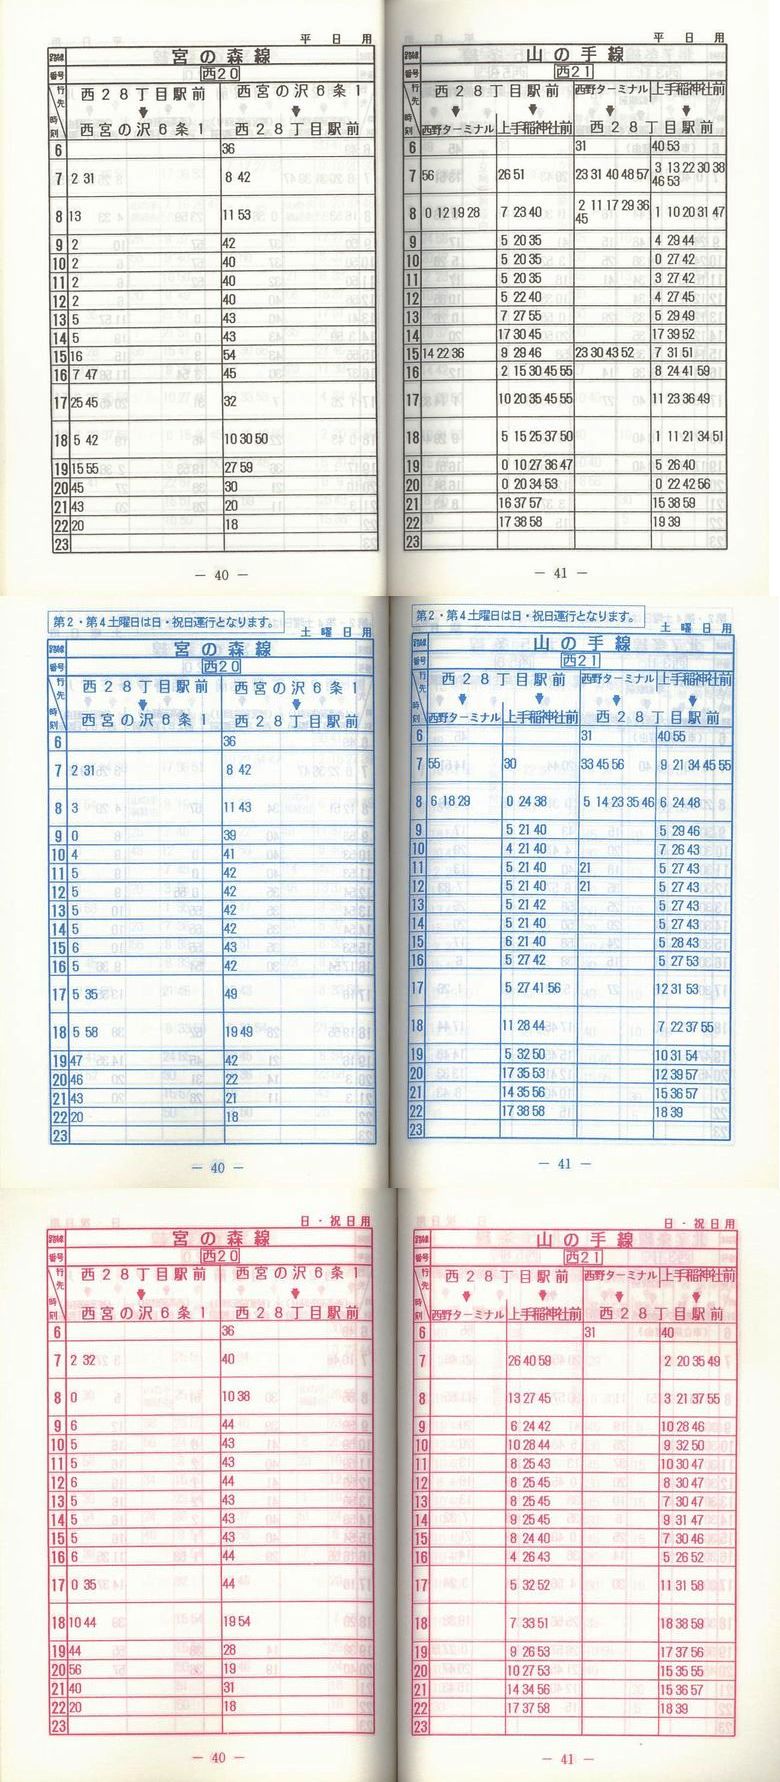 平日用
路線 宮の森線
番号 西20
行先 西28丁目駅前 西宮の沢6条1
時刻 西宮の沢6条1 西28丁目駅前
6 36
7 2 31 8 42
8 13 11 53
9 2 42
10 2 40
11 2 40
12 2 40
13 5 43
14 5 43
15 16 54
16 7 47 45
17 25 45 32
18 5 42 10 30 50
19 15 55 27 59
20 45 30
21 43 20
22 20 18
23
— 40 —
平日用
路線 山の手線
番号 西21
行先 西28丁目駅前 西野ターミナル 上手稲神社前
時刻 西野ターミナル 上手稲神社前 西28丁目駅前
6 31 40 53
7 56 26 51 23 31 40 48 57 3 13 22 30 38
46 53
8 0 12 19 28 7 23 40 2 11 17 29 36 1 10 20 31 47
45
9 5 20 35 4 29 44
10 5 20 35 0 27 42
11 5 20 35 3 27 42
12 5 22 40 4 27 45
13 7 27 55 5 29 49
14 17 30 45 17 39 52
15 14 22 36 9 29 46 23 30 43 52 7 31 51
16 2 15 30 45 55 8 24 41 59
17 10 20 35 45 55 11 23 36 49
18 5 15 25 37 50 1 11 21 34 51
19 0 10 27 36 47 5 26 40
20 0 20 34 53 0 22 42 56
21 16 37 57 15 38 59
22 17 38 58 19 39
23
— 41 —
第2・第4土曜日は日・祝日運行となります。
土曜日用
路線 宮の森線
番号 西20
行先 西28丁目駅前 西宮の沢6条1
時刻 西宮の沢6条1 西28丁目駅前
6 36
7 2 31 8 42
8 3 11 43
9 0 39
10 4 41
11 5 42
12 5 42
13 5 42
14 5 42
15 6 43
16 5 42
17 5 35 49
18 5 58 19 49
19 47 42
20 46 22
21 43 21
22 20 18
23
— 40 —
第2・第4土曜日は日・祝日運行となります。
土曜日用
路線 山の手線
番号 西21
行先 西28丁目駅前 西野ターミナル 上手稲神社前
時刻 西野ターミナル 上手稲神社前 西28丁目駅前
6 31 40 55
7 55 30 33 45 56 9 21 34 45 55
8 6 18 29 0 24 38 5 14 23 35 46 6 24 48
9 5 21 40 5 29 46
10 4 21 40 7 26 43
11 5 21 40 21 5 27 43
12 5 21 40 21 5 27 43
13 5 21 42 5 27 43
14 5 21 40 5 27 43
15 6 21 40 5 28 43
16 5 27 42 5 27 53
17 5 27 41 56 12 31 53
18 11 28 44 7 22 37 55
19 5 32 50 10 31 54
20 17 35 53 12 39 57
21 14 35 56 15 36 57
22 17 38 58 18 39
23
— 41 —
日・祝日用
路線 宮の森線
番号 西20
行先 西28丁目駅前 西宮の沢6条1
時刻 西宮の沢6条1 西28丁目駅前
6 36
7 2 32 40
8 0 10 38
9 6 44
10 5 43
11 5 43
12 6 44
13 5 43
14 5 43
15 5 43
16 6 44
17 0 35 44
18 10 44 19 54
19 44 28
20 56 19
21 40 31
22 20 18
23
— 40 —
日・祝日用
路線 山の手線
番号 西21
行先 西28丁目駅前 西野ターミナル 上手稲神社前
時刻 西野ターミナル 上手稲神社前 西28丁目駅前
6 31 40
7 26 40 59 2 20 35 49
8 13 27 45 3 21 37 55
9 6 24 42 10 28 46
10 10 28 44 9 32 50
11 8 25 43 10 30 47
12 8 25 45 8 30 47
13 8 25 45 7 30 47
14 9 25 45 9 31 47
15 8 24 40 7 30 46
16 4 26 43 5 26 52
17 5 32 52 11 31 58
18 7 33 51 18 38 59
19 9 26 53 17 37 56
20 10 27 53 15 35 55
21 14 34 56 15 36 57
22 17 37 58 18 39
23
— 41 —